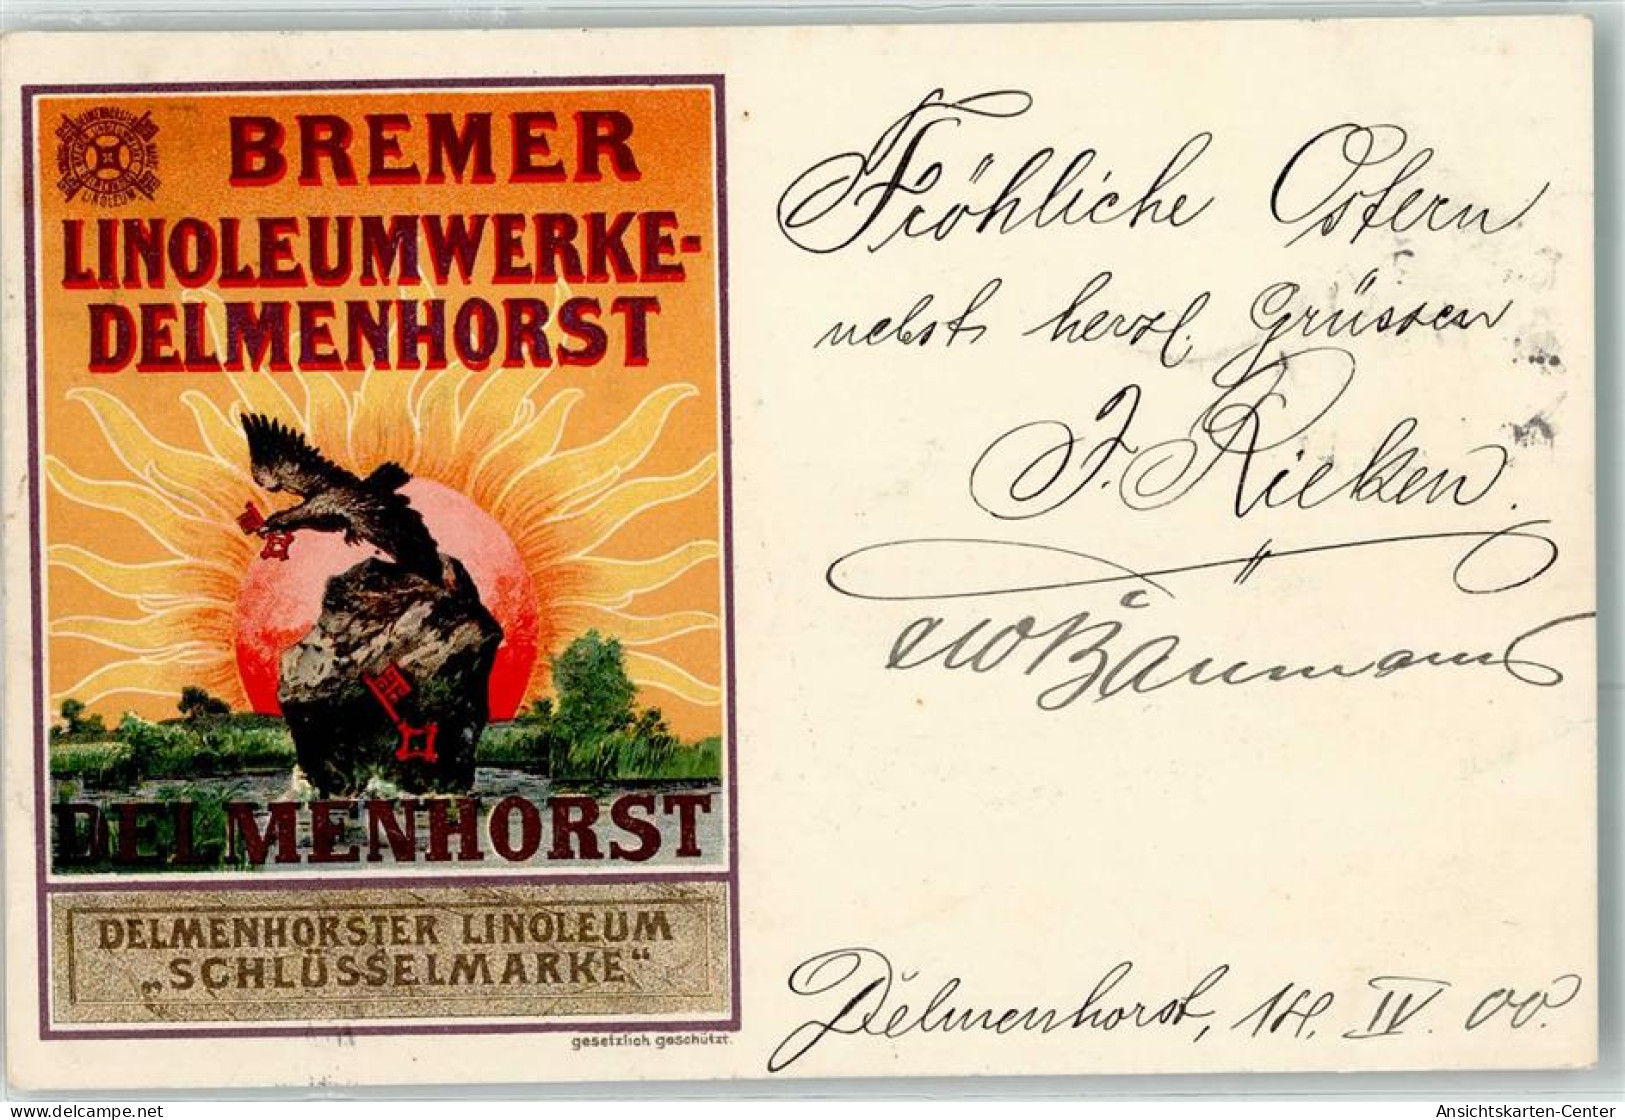 BREMER
LINOLEUMWERKE-
DELMENHORST
DELMENHORST
DELMENHORSTER LINOLEUM
„SCHLÜSSELMARKE“
gesetzlich geschützt.
Fröhliche Ostern
nebst herzl. Grüssen
J. Rieken.
Baumann
Delmenhorst, 14. IV. 00.
delcampe.net
Ansichtskarten-Center